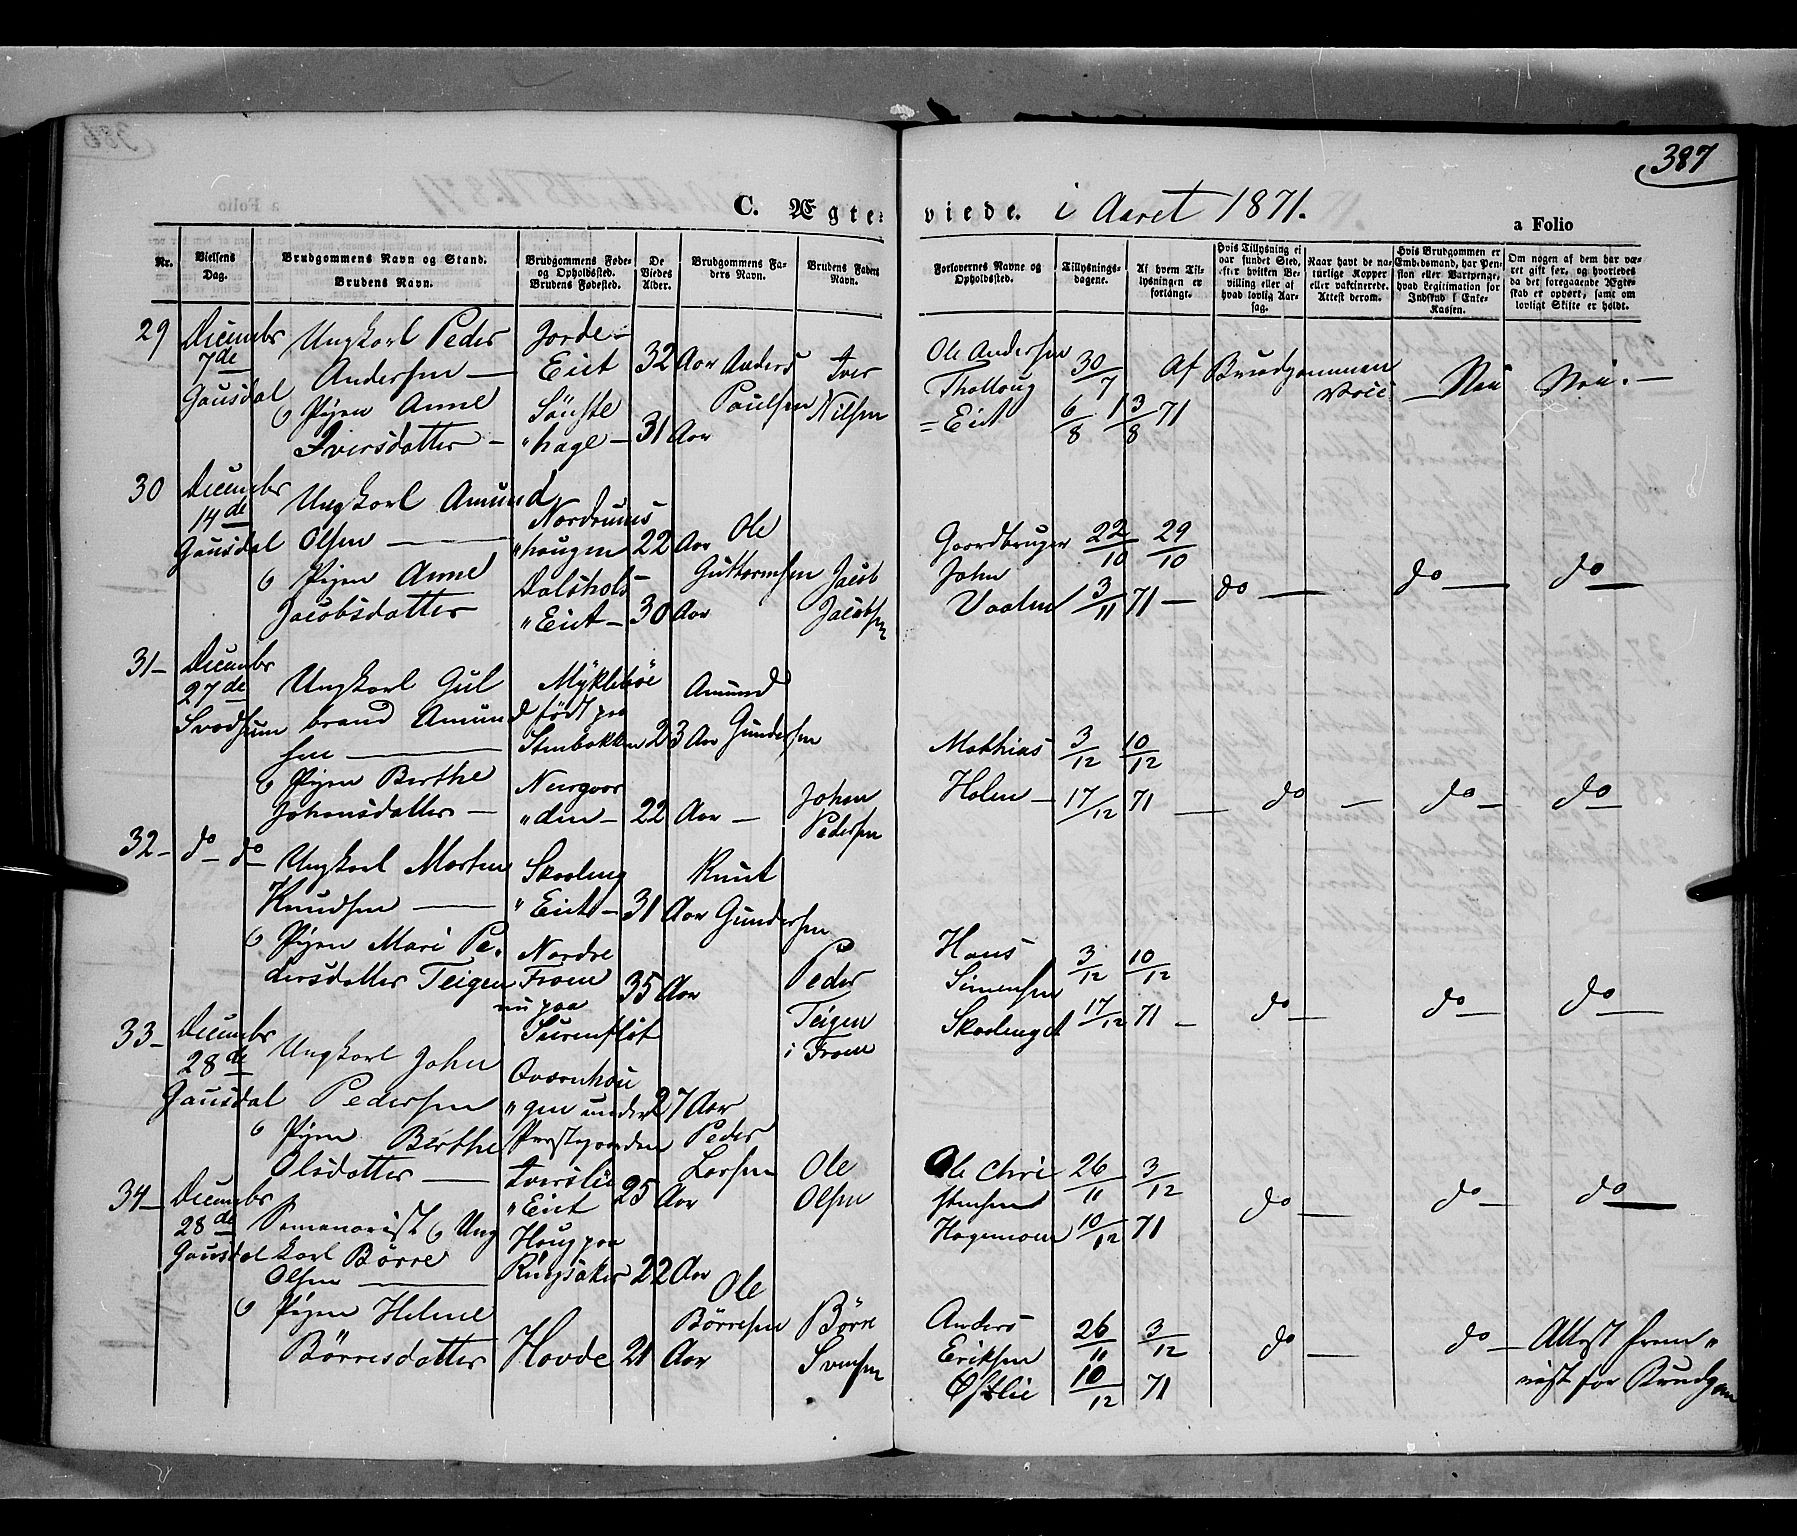 387
C. Ægteviede. i Aaret 1871.
a Folio
Nr.
Vielsens Dag.
Brudgommens Navn og Stand.
Brudens Navn.
Brudgommens Føde- og Opholdssted.
Brudens Fødested.
De Viedes Alder.
Brudgommens Faders Navn.
Brudens Faders Navn.
Forlovernes Navne og Opholdssted.
Tillysningsdagene.
Af hvem Tillysningen er forlangt.
Hvis Tillysning ei har fundet Sted, efter hvilken Bevilling eller af hvad lovlig Aarsag.
Naar havt de naturlige Kopper eller vaksinerede. Attest derom.
Hvis Brudgommen er Embedsmand, har Pension eller Vartpenge, hvad Legitimation for Indskud i Enke-Kassen.
Om nogen af dem har været gift før, og hvorledes da det foregaaende Ægteskab er ophørt, samt om lovligt Skifte er holdt.
29
Decembr
7de
Gausdal
Ungkarl Peder
Andersen —
o Pigen Anne
Iversdatter —
Jorde-
Eiet
Sønste
"hage —
32 Aar
31 Aar
Anders
Paulsen
Iver
Nilsen
Ole Andersen
Thallaug
=Eiet
30/7
6/8 13/8 71
Af Brudgommen
— Nei
Nei. —
30
Decembr
14de
Gausdal
Ungkarl Amund
Olsen —
o Pigen Anne
Jacobsdatter
Nordrums
"haugen
Dalshols
"Eiet —
22 Aar
30 Aar
Ole
Guttormsen
Jacob
Jacobsen
Gaardbruger
John
Vaalen
22/10 29/10
3/11 71 —
do —
do —
do —
31 —
Decembr
27de
Svadsum
Ungkarl Gul
brand Amund
sen —
o Pigen Berthe
Johansdatter —
Myklebøe
født paa
Stenbakken
Neergaar
"den —
23 Aar
22 Aar —
Amund
Gundersen
Johan
Pedersen
Mathias
Holen —
3/12 10/12
17/12 71 —
do —
do —
do —
32 —
do do
Ungkarl Morten
Knudsen —
o Pigen Mari Pe-
dersdatter Teigen
Skaaleng
"Eiet —
Nordre
Froen
nu paa
31 Aar
35 Aar
Knut
Gundersen
Peder
Teigen
i Froen
Hans
Simensen
3/12 10/12
17/12 71 —
do —
do —
do —
33 —
Decembr
28de
Gausdal
Ungkarl John
Pedersen
o Pigen Berthe
Olsdatter —
Qværnhau
"gen under
Prestgaarden
Iverslie
"Eiet
27 Aar
25 Aar
Peder
Larsen
Ole
Olsen
Ole Chri
stensen
Hagemoen
26/11 3/12
10/12 71
do —
do —
do —
34 —
Decembr
28de
Gausdal
Semenarist o Ung
karl Børre
Olsen —
o Pigen Helene
Børresdatter
Haug paa
Ringsaker
Hovde
22 Aar
21 Aar
Ole
Børresen
Børre
Svensen
Anders
Eriksen
Østlie
26/11 3/12
10/12 71
do —
do —
Attest frem"
vist for Brudgom